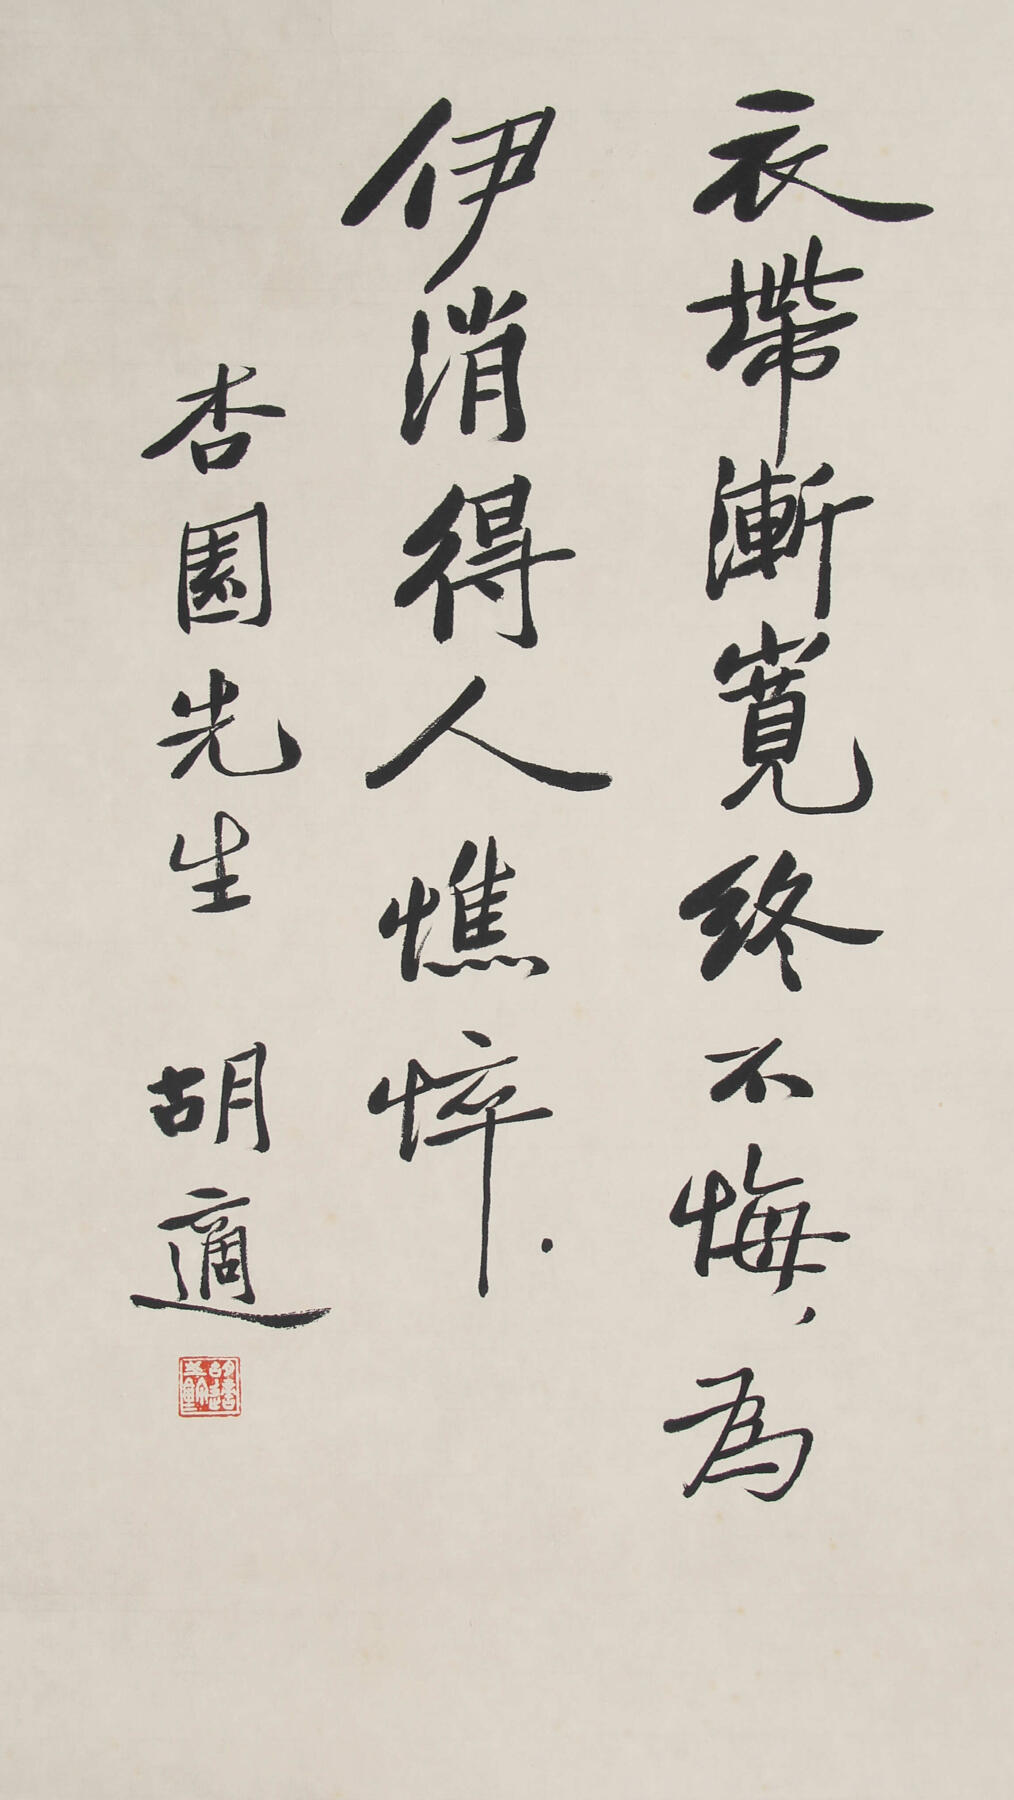 衣帶漸寬終不悔，為
伊消得人憔悴．
杏園先生 胡適